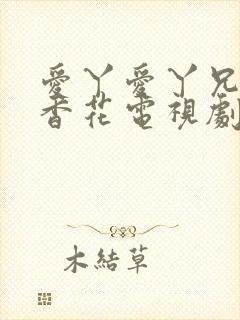 愛丫愛丫兄
香花電視劇
木結草